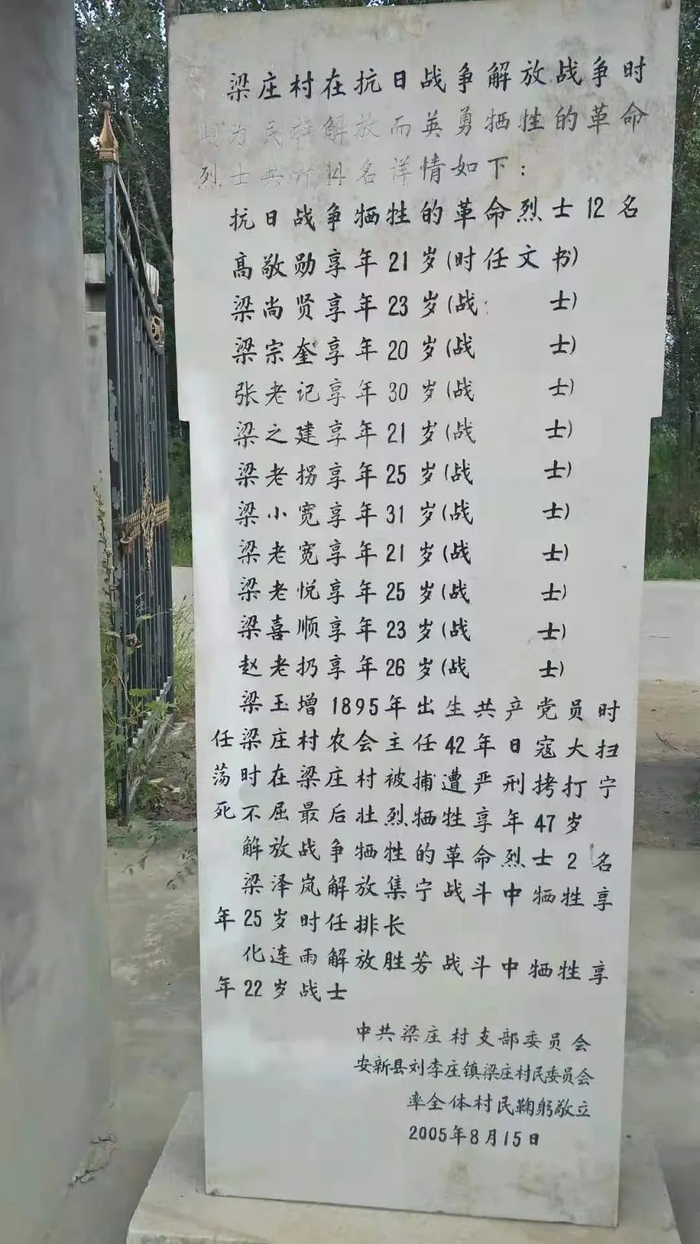 梁庄村在抗日战争解放战争时
期为民族解放而英勇牺牲的革命
烈士共计14名详情如下：
抗日战争牺牲的革命烈士12名
高敬勋享年21岁(时任文书)
梁尚贤享年23岁(战士)
梁宗奎享年20岁(战士)
张老记享年30岁(战士)
梁之建享年21岁(战士)
梁老拐享年25岁(战士)
梁小宽享年31岁(战士)
梁老宽享年21岁(战士)
梁老悦享年25岁(战士)
梁喜顺享年23岁(战士)
赵老扔享年26岁(战士)
梁玉增1895年出生共产党员时
任梁庄村农会主任42年日寇大扫
荡时在梁庄村被捕遭严刑拷打宁
死不屈最后壮烈牺牲享年47岁
解放战争牺牲的革命烈士2名
梁泽岚解放集宁战斗中牺牲享
年25岁时任排长
化连雨解放胜芳战斗中牺牲享
年22岁战士
中共梁庄村支部委员会
安新县刘李庄镇梁庄村民委员会
率全体村民鞠躬敬立
2005年8月15日